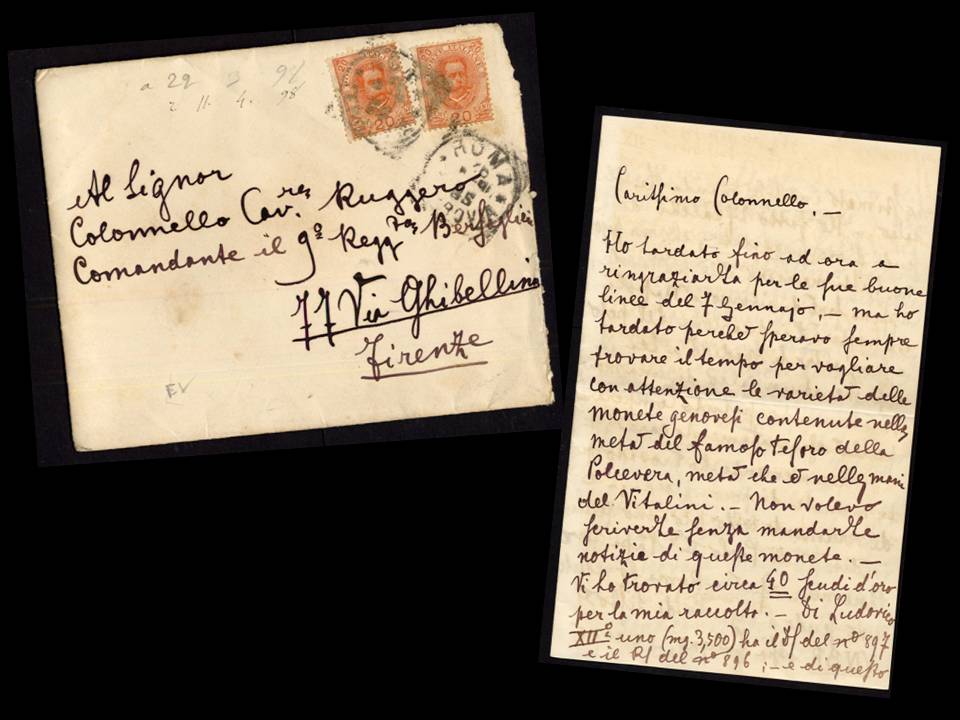 a 29 3 98
r. 11. 4. 98
20 20
20 20
ROMA
Al Signor
Colonnello Cav.re Ruggero
Comandante il 9º Regg. Bersaglieri
77 Via Ghibellina
Firenze
EV
Carissimo Colonnello. —
Ho tardato fino ad ora a
ringraziarLa per le sue buone
linee del 7 Gennajo, — ma ho
tardato perchè speravo sempre
trovare il tempo per vagliare
con attenzione le varietà delle
monete genovesi contenute nella
metà del famoso tesoro della
Polcevera, metà che è nelle mani
del Vitalini. — Non volevo
scriverLe senza mandarLe
notizie di queste monete. —
Vi ho trovato circa 40 scudi d'oro
per la mia raccolta. — Di Ludovico
XIIº uno (mg. 3,500) ha il D/ del nº 897
e il R/ del nº 896 ; — e di questo